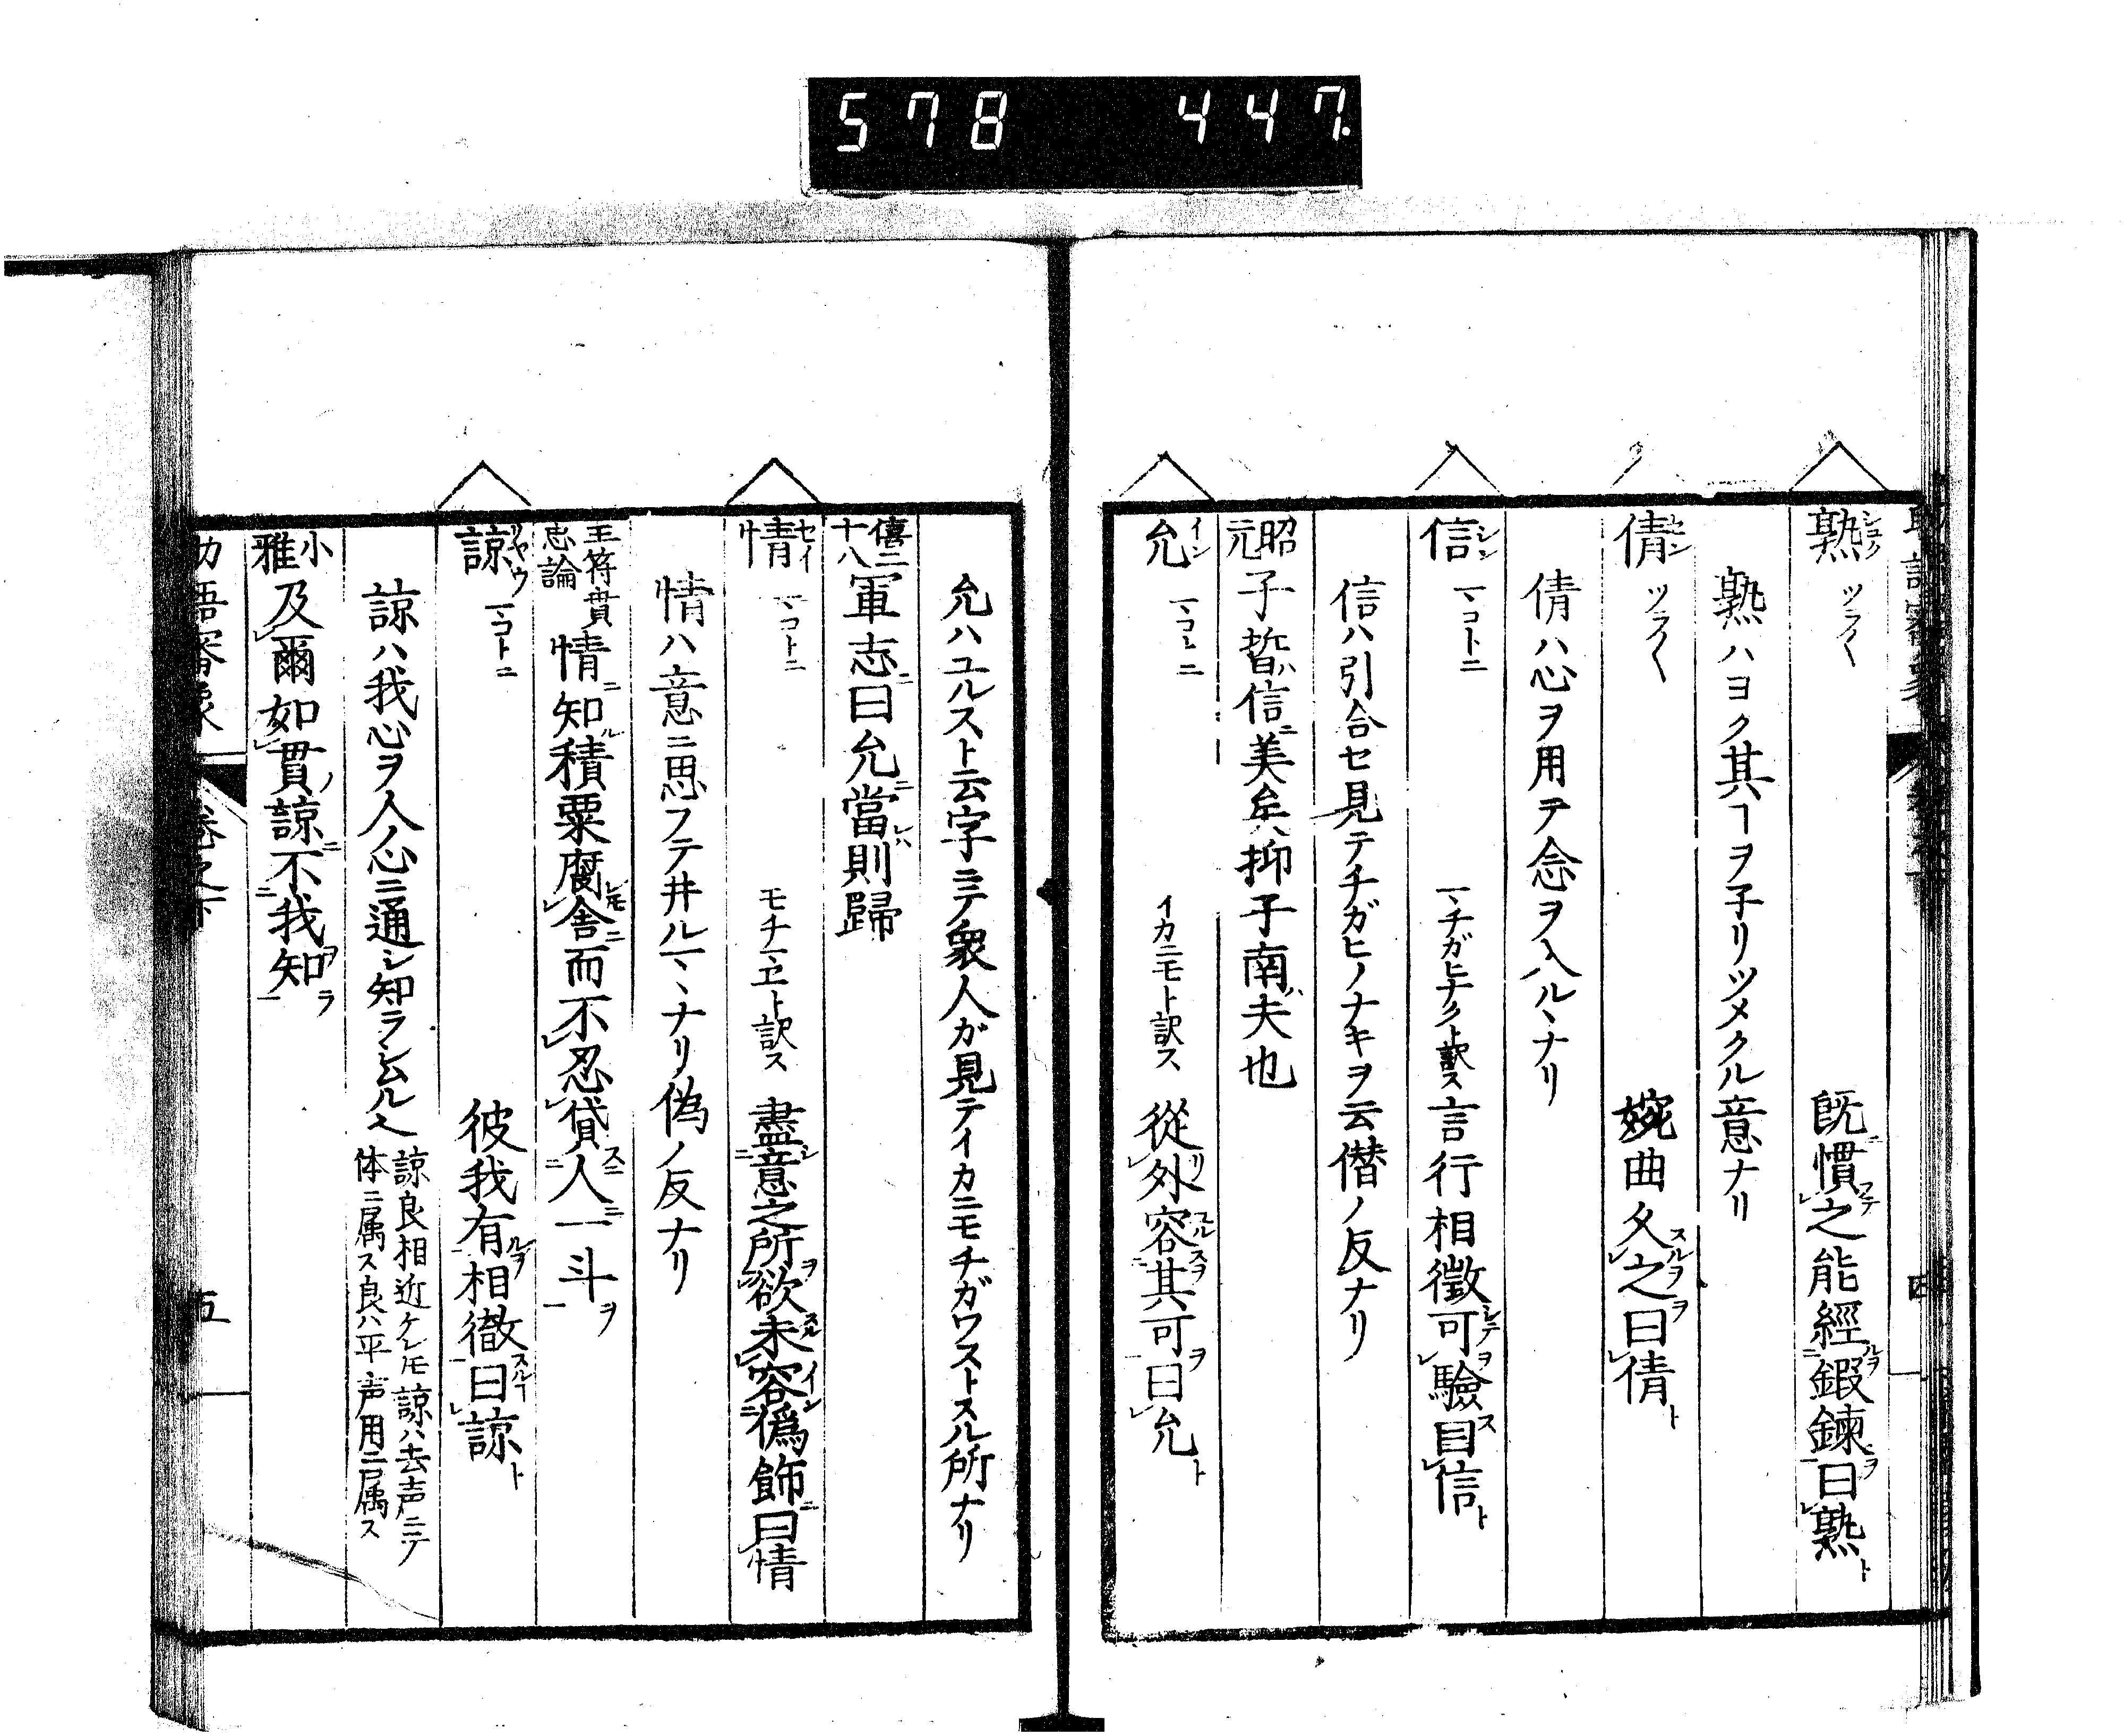 578 447.
熟 シユク ツラ〱 既慣之能經鍜鍊曰熟
熟ハヨク其ヿヲ子リツメクル意ナリ
倩 セン ツラ〱 婉曲久之曰倩
倩ハ心ヲ用テ念ヲ入ルヽナリ
信 シン マコトニ マチガヒナクト訳ス 言行相徵可驗曰信
信ハ引合セ見テチガヒノナキヲ云僭ノ反ナリ
昭元 子晳信美矣抑子南夫也
允 イン マコトニ イカニモト訳ス 從外容其可曰允
允ハユルスト云字ニテ衆人ガ見テイカニモチガワストスル所ナリ
僖二十八 軍志曰允當則歸
情 セイ マコトニ モチマヱト訳ス 盡意之所欲未容僞飾曰情
情ハ意ニ思フテ井ルマヽナリ偽ノ反ナリ
王符貴忠論 情知積粟腐舎而不忍貸人一斗
諒 リヤウ マコトニ 彼我有相徹曰諒
諒ハ我心ヲ人心ニ通シ知ラシムル也 諒良相近ケレ𪜈諒ハ去声ニテ
体ニ属ス良ハ平声用ニ属ス
小雅 及爾如貫諒不我知
助語審象 卷之下 五